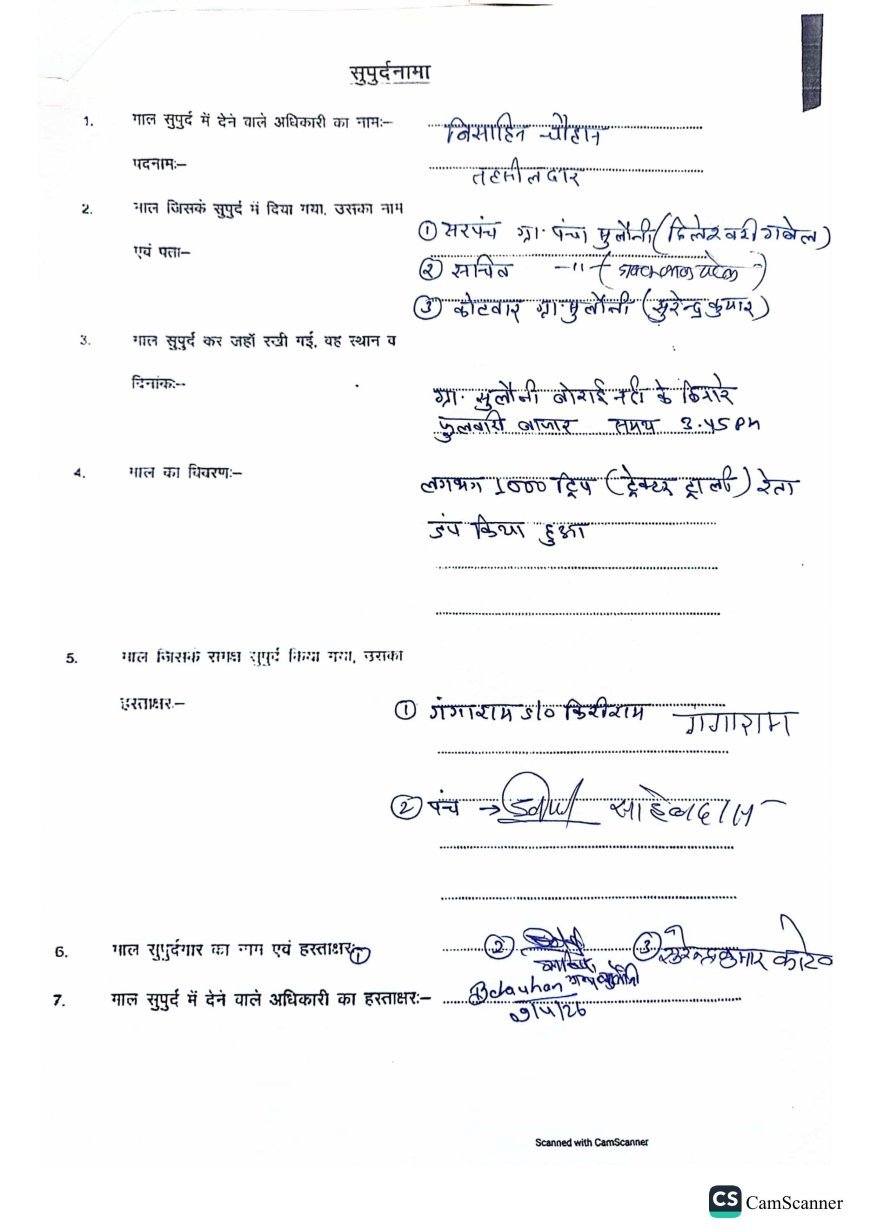 सुपुर्दनामा
1. माल सुपुर्द में देने वाले अधिकारी का नामः– निसाहिन चौहान
पदनामः– तहसीलदार
2. माल जिसके सुपुर्द में दिया गया, उसका नाम
एवं पता– ① सरपंच ग्रा. पंचा मुलौनी
② सचिव –〃–
③ कोटवार ग्रा. मुलौनी (सुरेन्द्र कुमार)
3. माल सुपुर्द कर जहाँ रखी गई, वह स्थान व
दिनांकः-- ग्रा. मुलौनी बोराई नदी के किनारे
फुलवारी बाजार समय 3.45 PM
4. माल का विवरणः– लगभग 1000 ट्रिप (ट्रेक्टर ट्राली) रेता
डंप किया हुआ
5. माल जिसके समक्ष सुपुर्द किया गया, उसका
हस्ताक्षर– ① गंगाराम S/O किरीराम गंगाराम
② पंच → साहेबदास
6. माल सुपुर्दगार का नाम एवं हस्ताक्षर ① ② ③ सुरेन्द्र कुमार कोटव
सचिव
7. माल सुपुर्द में देने वाले अधिकारी का हस्ताक्षरः– Bchauhan
Scanned with CamScanner
CS CamScanner